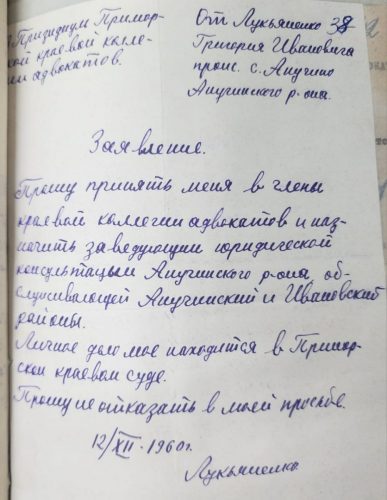 Призидиум Примор-
кой краевой колле-
ии адвокатов.
От Лукьяненко 38
Григория Ивановича
прож. с. Анучино
Анучинского р-она.
Заявление.
Прошу принять меня в члены
краевой коллегии адвокатов и наз-
начить заведующим юридической
консультацыи Анучинского р-она, об-
служивающей Анучинский и Ивановский
районы.
Личное дело мое находится в Примор-
ском краевом суде.
Прошу не отказать в моей просьбе.
12/XII-1960г.
Лукьяненко